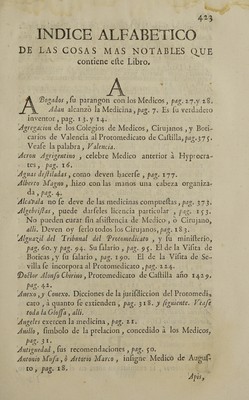 423
INDICE ALFABETICO
DE LAS COSAS MAS NOTABLES QUE
contiene este Libro.
A
ABogados, su parangon con los Medicos, pag. 27. y 28.
Adan alcanzò la Medicina, pag. 7. Es su verdadero
inventor, pag. 13. y 14.
Agregacion de los Colegios de Medicos, Cirujanos, y Boti-
carios de Valencia al Protomedicato de Castilla, pag. 375.
Vease la palabra, Valencia.
Acron Agrigentino, celebre Medico anterior à Hypocra-
tes, pag. 16.
Aguas destiladas, como deven hacerse, pag. 177.
Alberto Magno, hizo con las manos una cabeza organiza-
da, pag. 4.
Alcavala no se deve de las medicinas compuestas, pag. 173.
Algebristas, puede darseles licencia particular, pag. 153.
No pueden curar sin assistencia de Medico, ò Cirujano,
alli. Deven oy serlo todos los Cirujanos, pag. 183.
Alguazil del Tribunal del Protomedicato, y su ministerio,
pag. 60. y pag. 94. Su salario, pag. 95. El de la Visita de
Boticas, y su salario, pag. 190. El de la Visita de Se-
villa se incorpora al Protomedicato, pag. 224.
Doctor Alonso Chirino, Protomedico de Castilla año 1429.
pag. 42.
Anexo, y Conexo. Dicciones de la jurisdiccion del Protomedi-
cato, à quanto se extienden, pag. 318. y siguiente. Vease
toda la Glossa, alli.
Angeles exercen la medicina, pag. 21.
Anillo, simbolo de la prelacion, concedido à los Medicos,
pag. 31.
Antiguedad, sus recomendaciones, pag. 50.
Antonio Musa, ò Arturio Marco, insigne Medico de Augus-
to, pag. 18.
Apio,